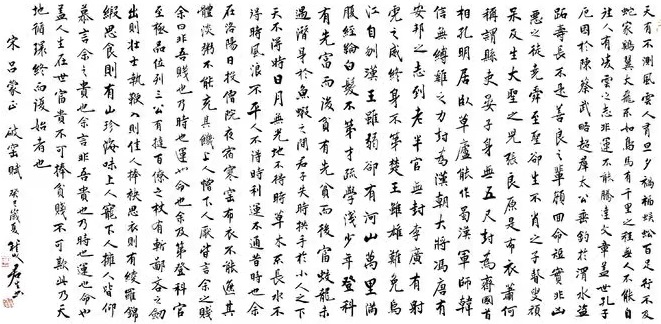 天有不測風雲人有旦夕禍福蜈蚣百足行不及
蛇家鷄翼大飛不如鳥馬有千里之程無人不能自
往人有凌雲之志非運不能騰達文章蓋世孔子
厄困於陳蔡武略超群太公垂釣於渭水盜
跖壽長不是善良之輩顔回命短實非凶
惡之徒堯舜至聖卻生不肖之子瞽叟頑
呆反生大聖之兒張良原是布衣蕭何
稱謂縣吏晏子身無五尺封為齊國首
相孔明居臥草廬能作蜀漢軍師韓
信無縛雞之力封為漢朝大將馮唐有
安邦之志到老半官無封李廣有射
虎之威終身不第楚王雖雄難免烏
江自刎漢王雖弱卻有河山萬里滿
腹經綸白髮不第才疏學淺少年登科
有先富而後貧有先貧而後富蛟龍未
遇潛身於魚蝦之間君子失時拱手於小人之下
天不得時日月無光地不得時草木不長水不
得時風浪不平人不得時利運不通昔時余
在洛陽日投僧院夜宿寒窯布衣不能遮其
體淡粥不能充其饑上人憎下人厭皆言余之賤
余曰非吾賤也乃時也運也命也余及第登科官
至極品位列三公有撻百僚之杖有斬鄙吝之劍
出則壯士執鞭入則佳人捧秧思衣則有綾羅錦
緞思食則有山珍海味上人寵下人擁人皆仰
慕言余之貴也余言非吾貴也乃時也運也命也
蓋人生在世富貴不可捧貧賤不可欺此乃天
地循環終而復始者也
宋吕蒙正 破窑賦 癸巳歲夏